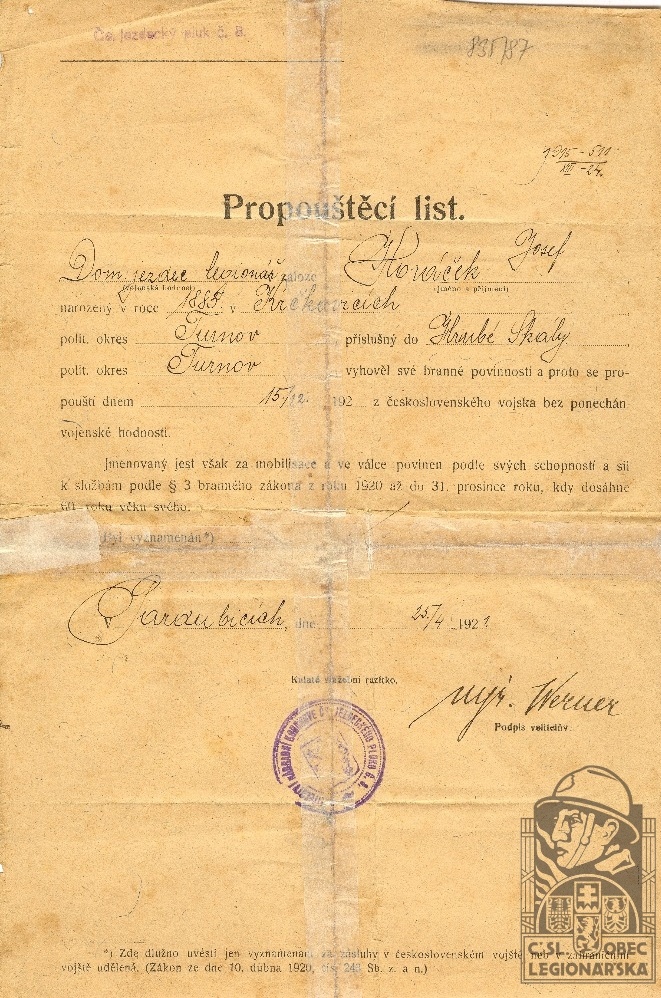 Čs. jezdecký pluk č. 8.
835/87
Propouštěcí list.
Dom. jezdec legionář záloze Josef
(vojenská hodnost) (jméno a příjmení)
narozený v roce 1885 v
polit. okres Turnov příslušný do Hrubé Skály
polit. okres Turnov vyhověl své branné povinnosti a proto se pro-
pouští dnem 15/12. 192 z československého vojska bez ponechán
vojenské hodnosti.
Jmenovaný jest však za mobilisace a ve válce povinen podle svých schopností a sil
k službám podle § 3 branného zákona z roku 1920 až do 31. prosince roku, kdy dosáhne
roku věku svého.
Byl vyznamenán*)
v Pardubicích, dne 25/4 1921
Kulaté služební razítko.
mjr. Werner
Podpis velitelův.
*) Zde dlužno uvésti jen vyznamenání za zásluhy v československém vojště neb v zahraničním
vojště udělená. (Zákon ze dne 10. dubna 1920, čís. 243 Sb. z. a n.)
ČSL. OBEC
LEGIONÁŘSKÁ